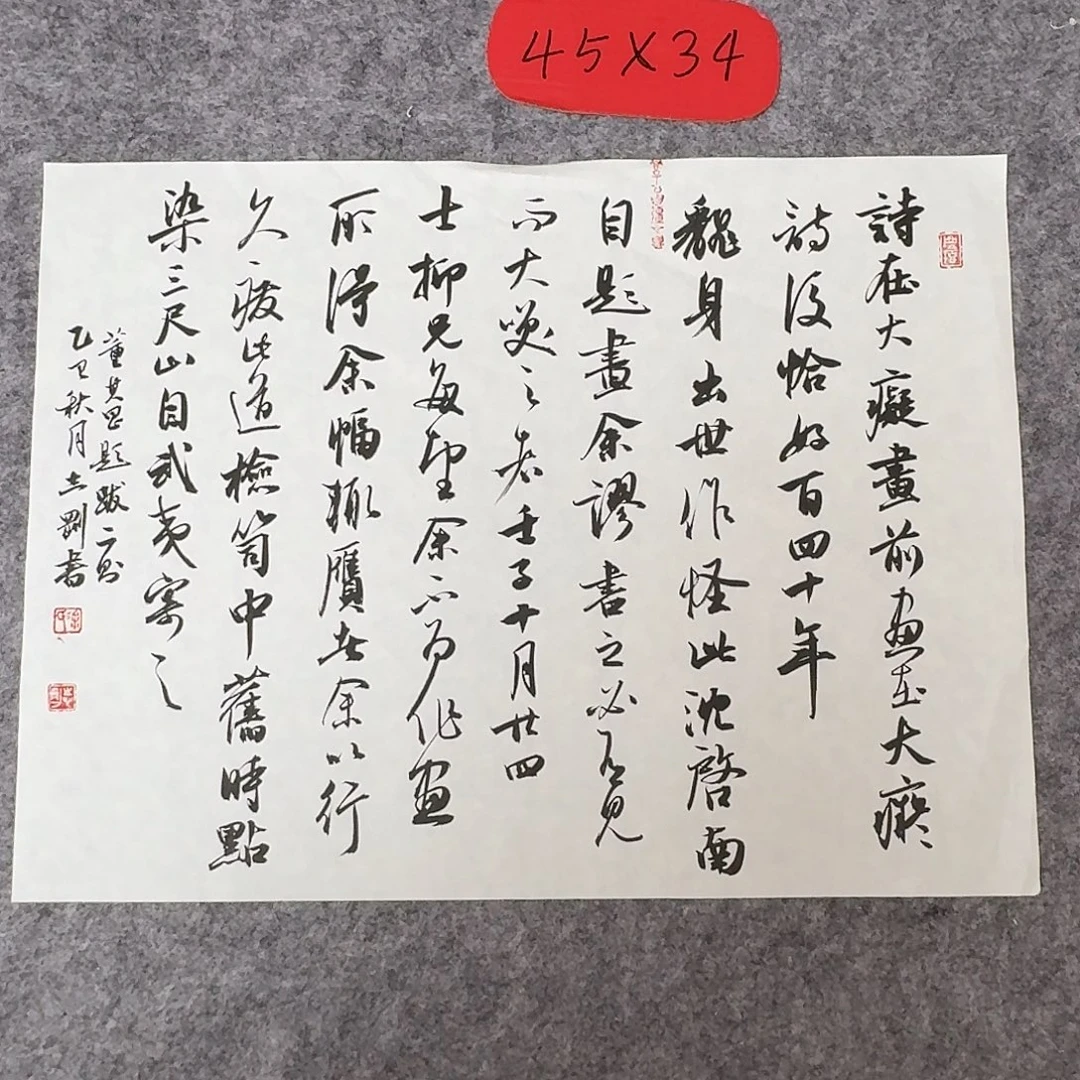 45X34
詩在大癡畫前畫在大癡
詩後恰好百四十年
飜身出世作怪此沈啓南
自題畫余謬書之必有見
而大笑之者壬子十月廿四
士抑兄每望余不為作畫
所得余幅輒贋者余以行
久廢此道檢笥中舊時點
染三尺山自武夷寄之
董其昌題跋二則
乙巳秋月志剛書